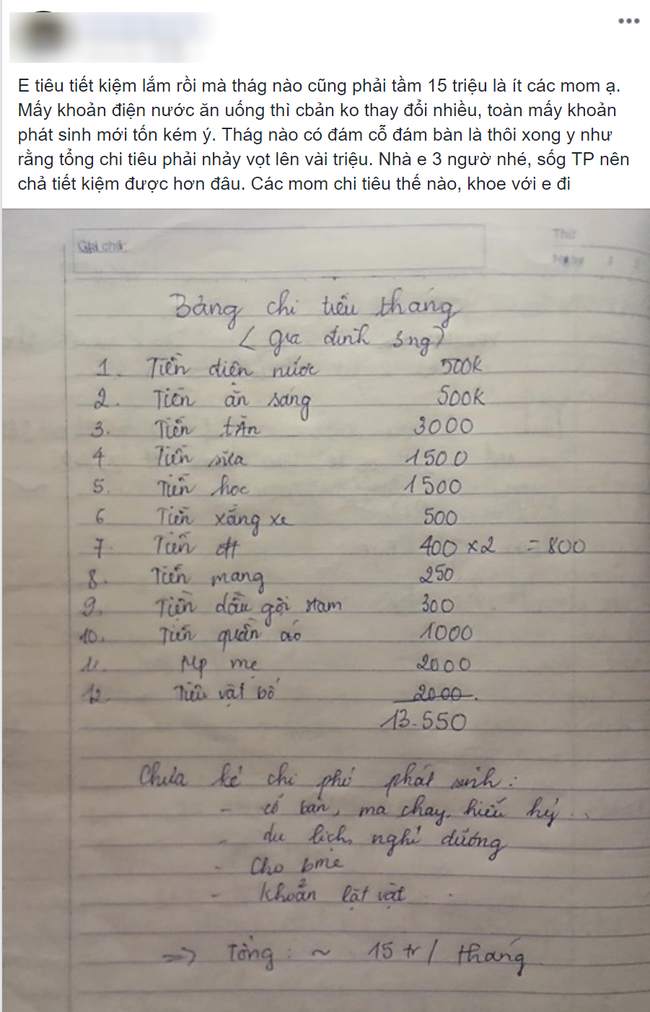 E tiêu tiết kiệm lắm rồi mà thág nào cũng phải tầm 15 triệu là ít các mom ạ.
Mấy khoản điện nước ăn uống thì cbản ko thay đổi nhiều, toàn mấy khoản
phát sinh mới tốn kém ý. Thág nào có đám cỗ đám bàn là thôi xong y như
rằng tổng chi tiêu phải nhảy vọt lên vài triệu. Nhà e 3 ngườ nhé, sốg TP nên
chả tiết kiệm được hơn đâu. Các mom chi tiêu thế nào, khoe với e đi
Ghi chú: Thứ
Ngày
Bảng chi tiêu tháng
( gia đình 3ng)
1. Tiền điện nước 500k
2. Tiền ăn sáng 500k
3. Tiền tĂn 3000
4 Tiền sữa 1500
5. Tiền học 1500
6 Tiền xăng xe 500
7 Tiền đt 400 x2 = 800
8. Tiền mạng 250
9. Tiền dầu gội stam 300
10. Tiền quần áo 1000
11. Mp mẹ 2000
12. Tiêu vặt bố 2000
13.550
Chưa kể chi phí phát sinh:
- cỗ bàn, ma chay, hiếu hỷ...
- du lịch, nghỉ dưỡng
- Cho bme
- khoản lặt vặt
=> Tổng: ~ 15 tr / tháng